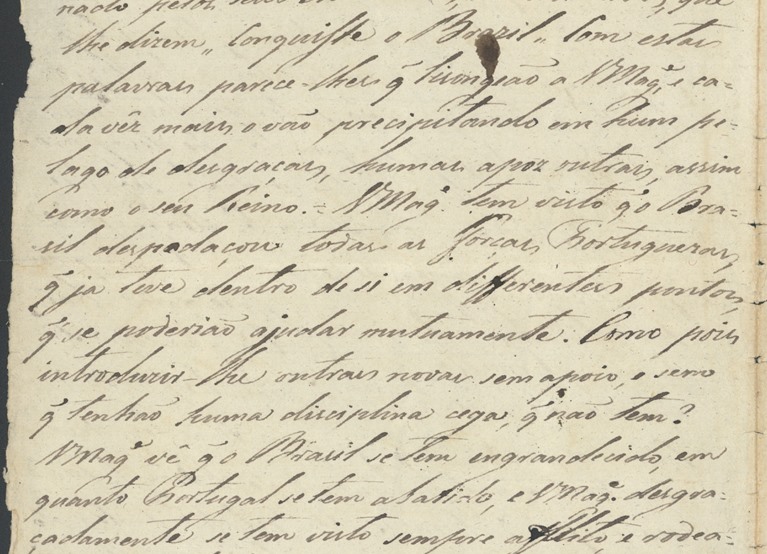 nado pelos seus que
lhe dizem „ Conquiste o Brazil „ Com estas
palavras parece-lhes q̃ lisongeão a VMagᵉ, e ca-
da vêz mais o vão precipitando em hum pe-
lago de desgraças, humas apoz outras, assim
como o seu Reino. = VMagᵉ. tem visto q̃ o Bra-
sil despedaçou todas as forças Portuguezas,
q̃ ja teve dentro de si em differentes pontos,
q̃ se poderião ajudar mutuamente. Como pois
introduzir-lhe outras novas sem apoio, e sem
q̃ tenhão huma disciplina cega, q̃ não tem?
VMagᵉ vê q̃ o Brasil se tem engrandecido, em
quanto Portugal se tem abatido, e VMagᵉ. desgra-
çadamente se tem visto sempre afflito e rodea-